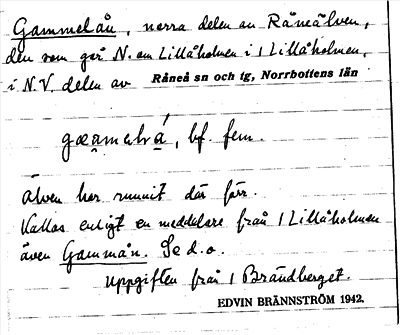 Gammelån, norra delen av Råneälven,
den som går N. om Lillåholmen i 1 Lillåholmen,
i N.V. delen av Råneå sn och tg, Norrbottens län
bf. fem.
Älven har runnit där förr.
Kallas enligt en meddelare från 1 Lillåholmen
även Gammån. Se d.o.
Uppgiften från 1 Brändberget.
EDVIN BRÄNNSTRÖM 1942.